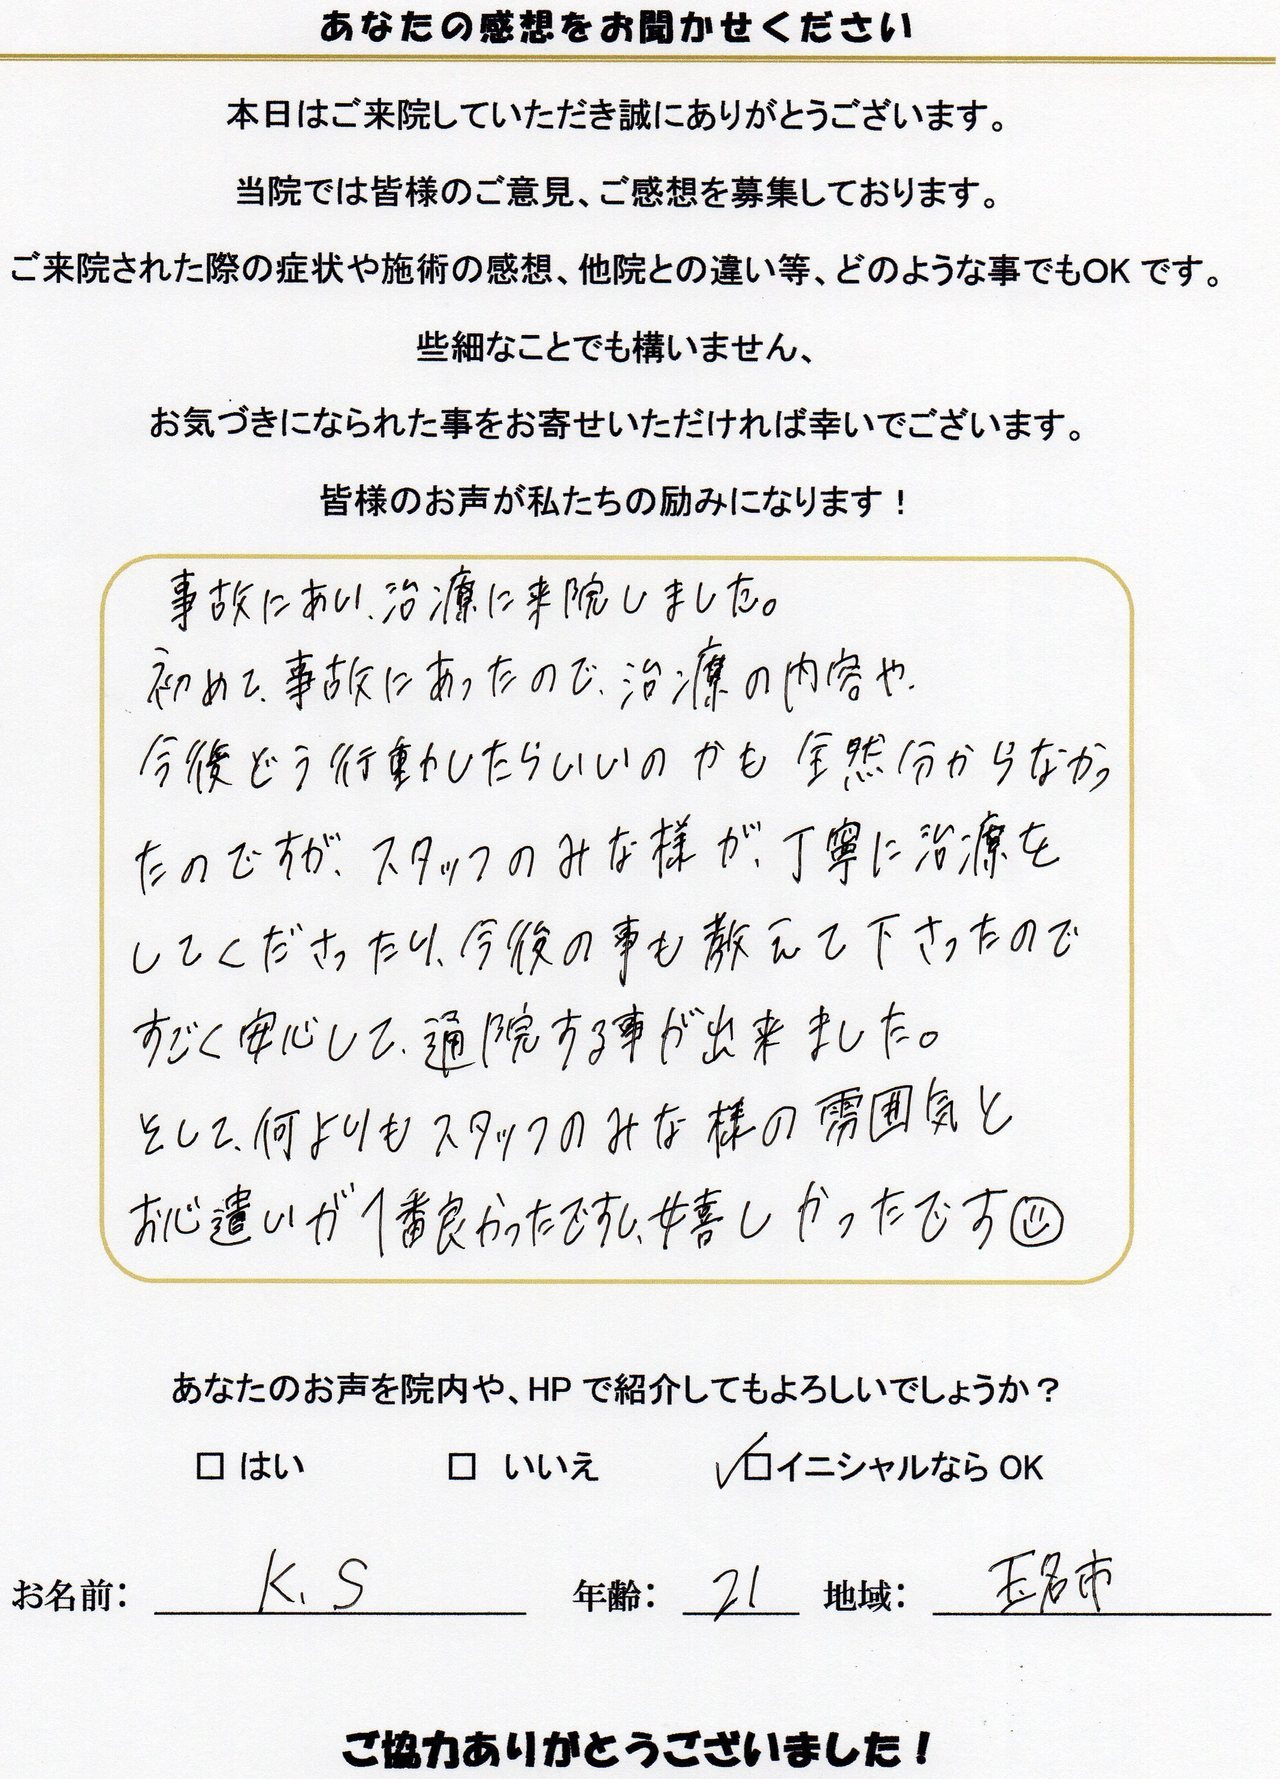 あなたの感想をお聞かせください
本日はご来院していただき誠にありがとうございます。
当院では皆様のご意見、ご感想を募集しております。
ご来院された際の症状や施術の感想、他院との違い等、どのような事でもOKです。
些細なことでも構いません、
お気づきになられた事をお寄せいただければ幸いでございます。
皆様のお声が私たちの励みになります！
事故にあい、治療に来院しました。
初めて、事故にあったので、治療の内容や、
今後どう行動したらいいのかも全然分からなかっ
たのですが、スタッフのみな様が、丁寧に治療を
してくださったり、今後の事も教えて下さったので
すごく安心して、通院する事が出来ました。
そして、何よりもスタッフのみな様の雰囲気と
お心遣いが1番良かったですし、嬉しかったです
あなたのお声を院内や、HPで紹介してもよろしいでしょうか？
□ はい □ いいえ ☑イニシャルなら OK
お名前： K.S 年齢： 21 地域： 玉名市
ご協力ありがとうございました！